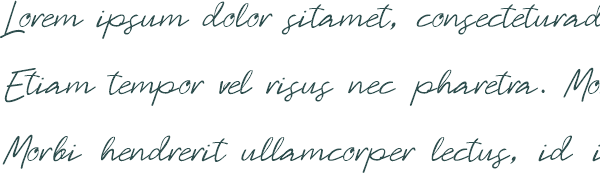 Lorem ipsum dolor sitamet, consecteturad
Etiam tempor vel risus nec pharetra. Mo
Morbi hendrerit ullamcorper lectus, id i